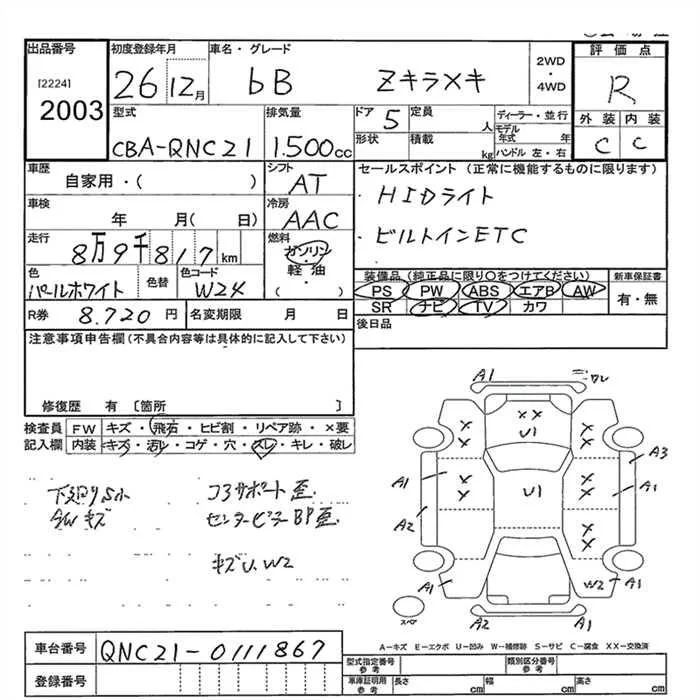 出品番号 初度登録年月 車名・グレード 2WD・4WD 評価点
[2224] 2003 26 12月 bB Zキラメキ R
型式 排気量 ドア 定員 ディーラー・並行 外装 内装
CBA-QNC21 1.500cc 5 人 モデル年式 年 C C
形状 積載 kg ハンドル 左・右
車歴 シフト セールスポイント（正常に機能するものに限ります）
自家用・( ) AT ・HIDライト
車検 冷房
年 月( 日) AAC ・ビルトインETC
走行 燃料
8万9千817km ガソリン・軽油・( )
色 色替 色コード 装備品（純正品に限り〇をつけてください） 新車保証書
パールホワイト W24 PS PW ABS エアB AW 有・無
SR ナビ TV カワ
R券 8.720円 名変期限 月 日 後日品
注意事項申告欄（不具合内容等は具体的に記入して下さい）
修復歴 有 [箇所 ]
検査員記入欄 FW キズ・飛石・ヒビ割・リペア跡・×要
内装 キズ・汚レ・コゲ・穴・スレ・キレ・破レ
下廻りS小 コアサポート歪
AWキズ センターピラーBP歪
キズU、W2
A1 ワレ
×× U1
× × × ×
A1 × × U1 × × A1 A3
A2 × ×
A1 W2 A1
スペア A2 A1
A-キズ E-エクボ U-凹み W-補修跡 S-サビ C-腐食 XX-交換済
車台番号 QNC21-0111867
登録番号
型式指定番号 参考 類別区分番号 参考
車庫証明用 参考 長さ cm 幅 cm 高さ cm